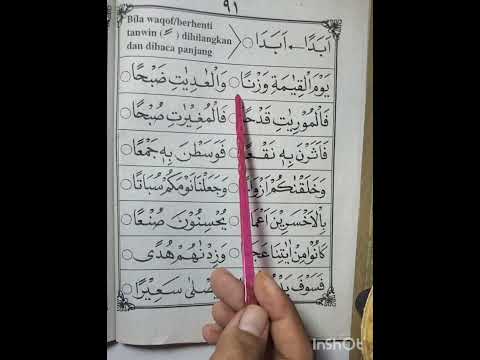 ٩١
Bila waqof/berhenti
tanwin ( ـً ) dihilangkan
dan dibaca panjang
اَبَدًا ← اَبَدَا
يَوْمَ الْقِيٰمَةِ وَزْنًا ○ وَالْعٰدِيٰتِ ضَبْحًا ○
فَالْمُوْرِيٰتِ قَدْحًا ○ فَالْمُغِيْرٰتِ صُبْحًا ○
فَاَثَرْنَ بِهٖ نَقْعًا ○ فَوَسَطْنَ بِهٖ جَمْعًا ○
وَخَلَقْنٰكُمْ وَجَعَلْنَا نَوْمَكُمْ سُبَاتًا ○
بِالْاَخْسَرِيْنَ يُحْسِنُوْنَ صُنْعًا ○
كَانُوْا مِنْ اٰيٰتِنَا وَزِدْنٰهُمْ هُدًى ○
فَسَوْفَ سَعِيْرًا ○
InShOt